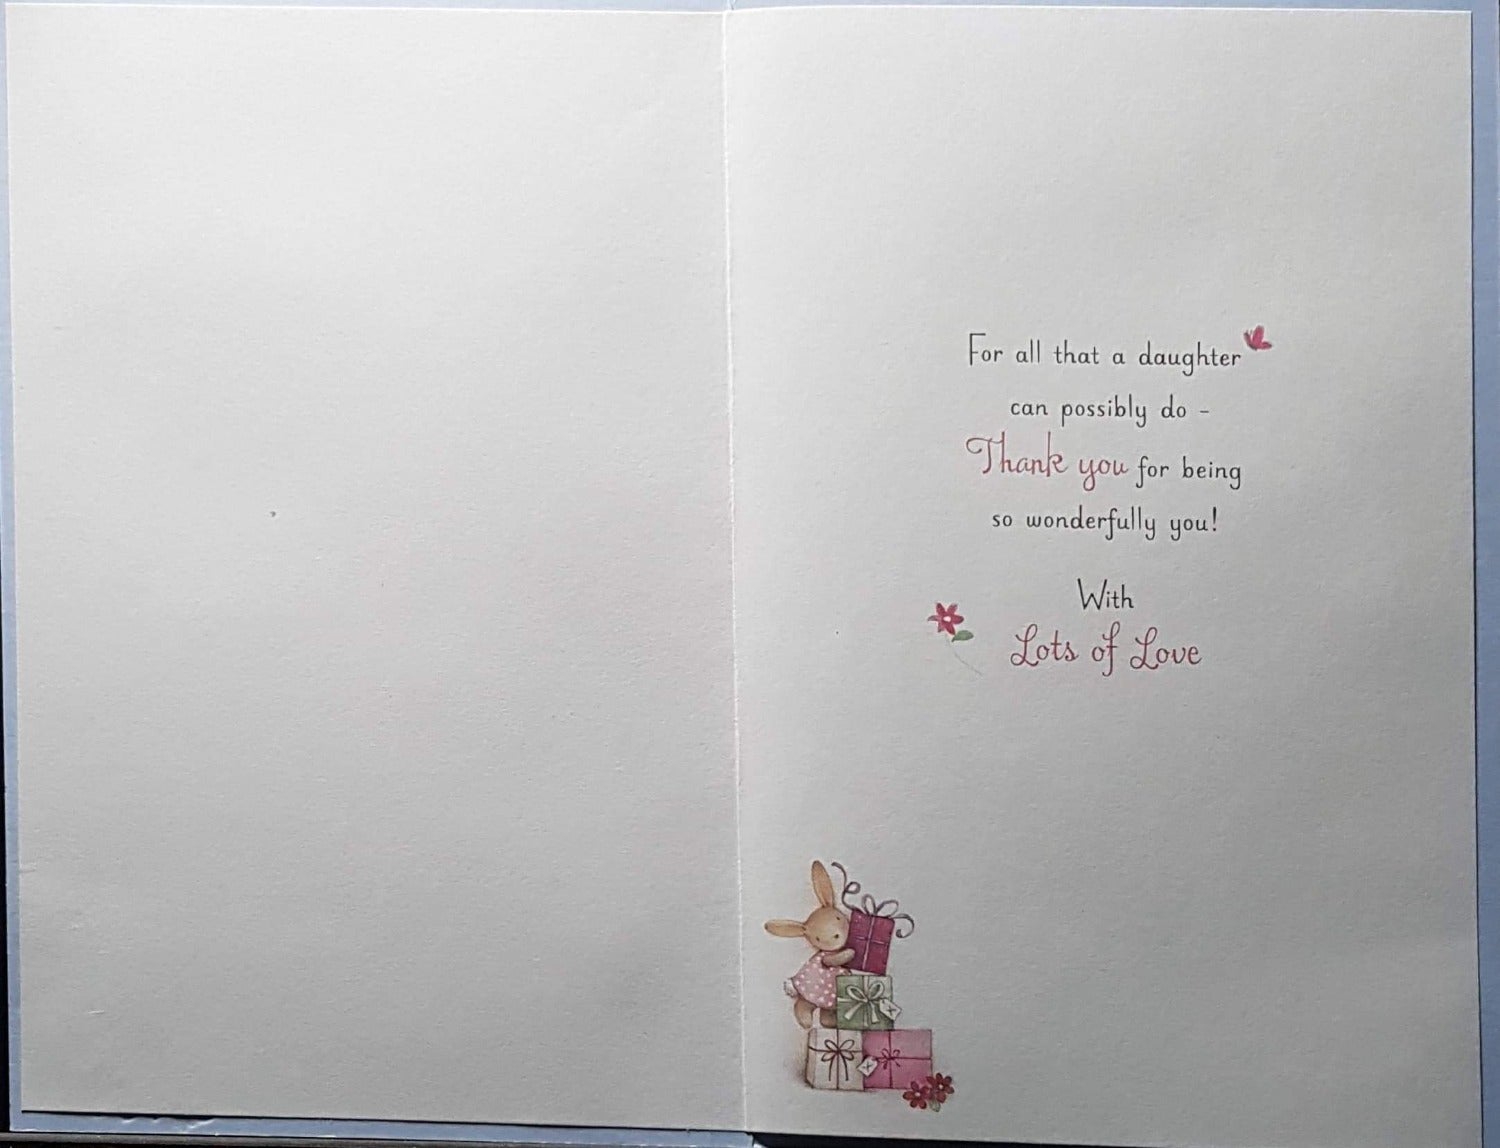 For all that a daughter
can possibly do -
Thank you for being
so wonderfully you!
With
Lots of Love